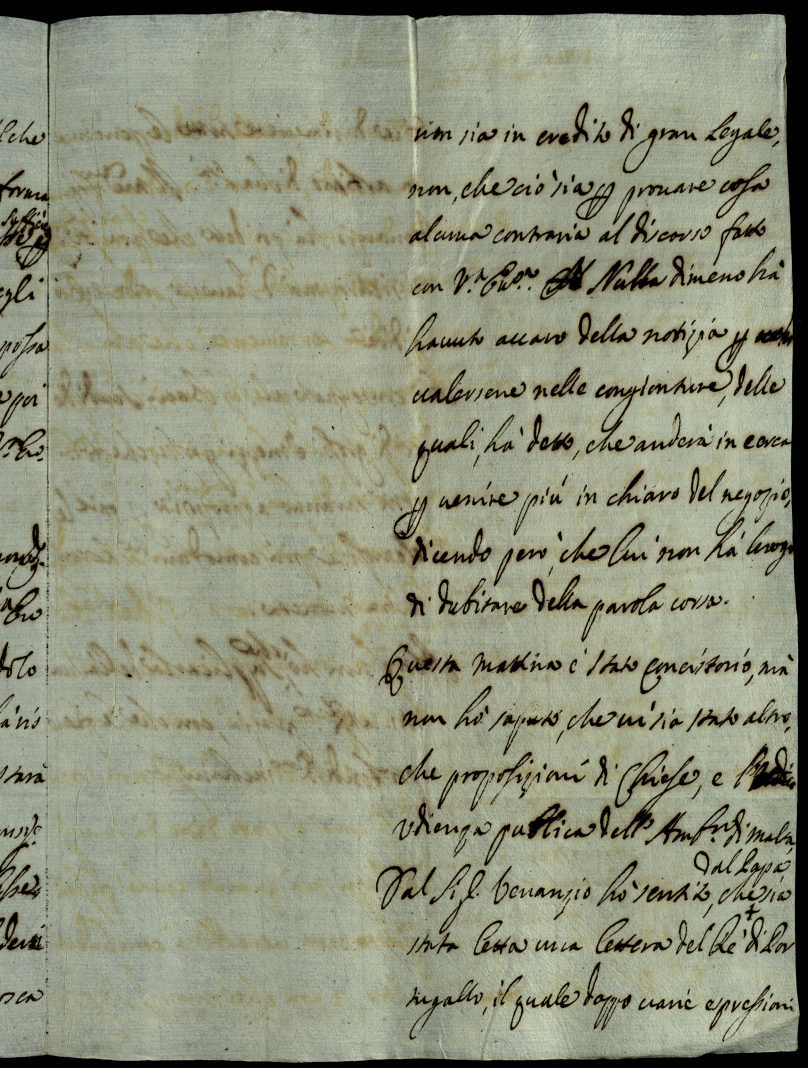 lche
forma
egli
possa
e poi
dolo
starà
osca
non sia in credito di gran Legale,
non, che ciò sia p provare cosa
alcuna contraria al discorso fatto
con V.ª Em.ª Nulla dimeno hà
havuto accaro della notizia p
valersene nelle congionture, delle
quali, hà detto, che anderà in cerca
p venire più in chiaro del negozio,
dicendo però, che lui non hà luogo
di dubitare della parola corsa.
Questa mattina è stato Concistorio, mà
non hò saputo, che vi sia stato altro,
che proposizioni di Chiese, e l'
Udienza publica dell' Amb.re di Malta,
dal Papa
Dal Sig.r Venanzio hò sentito, che sia
stata letta una lettera del Rè di Por
tugallo, il quale doppo varie espressioni